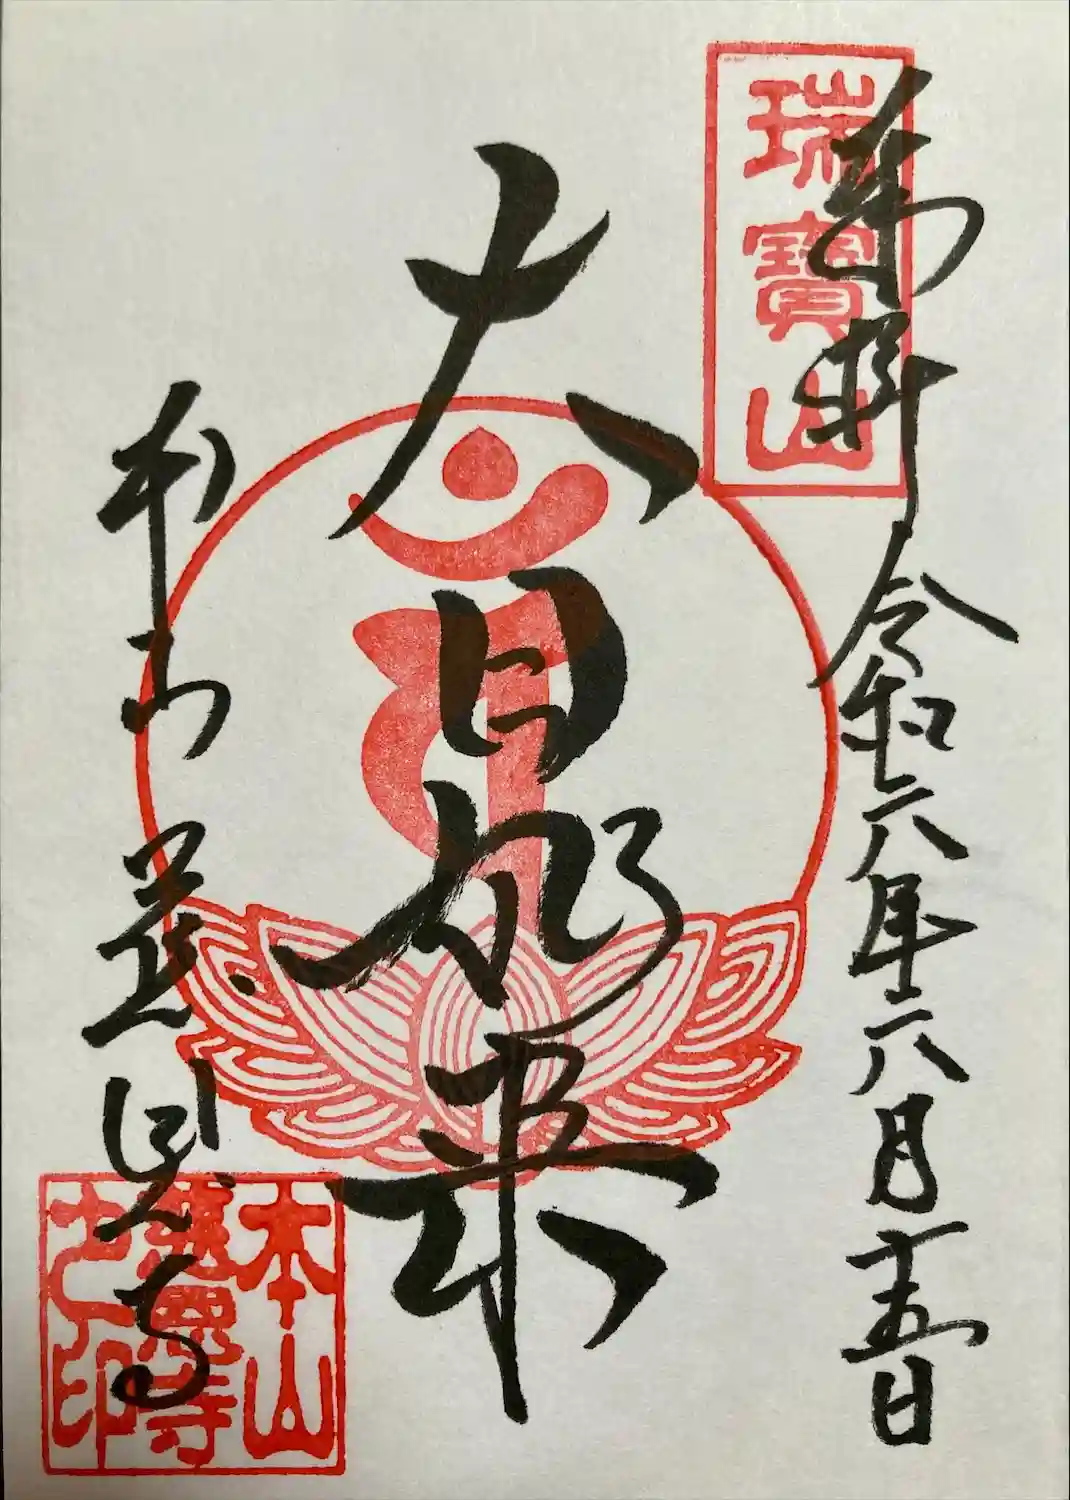 瑞寶山
奉拝 令和六年六月十五日
大日如来
本山慈恩寺
本山
慈恩寺
之印